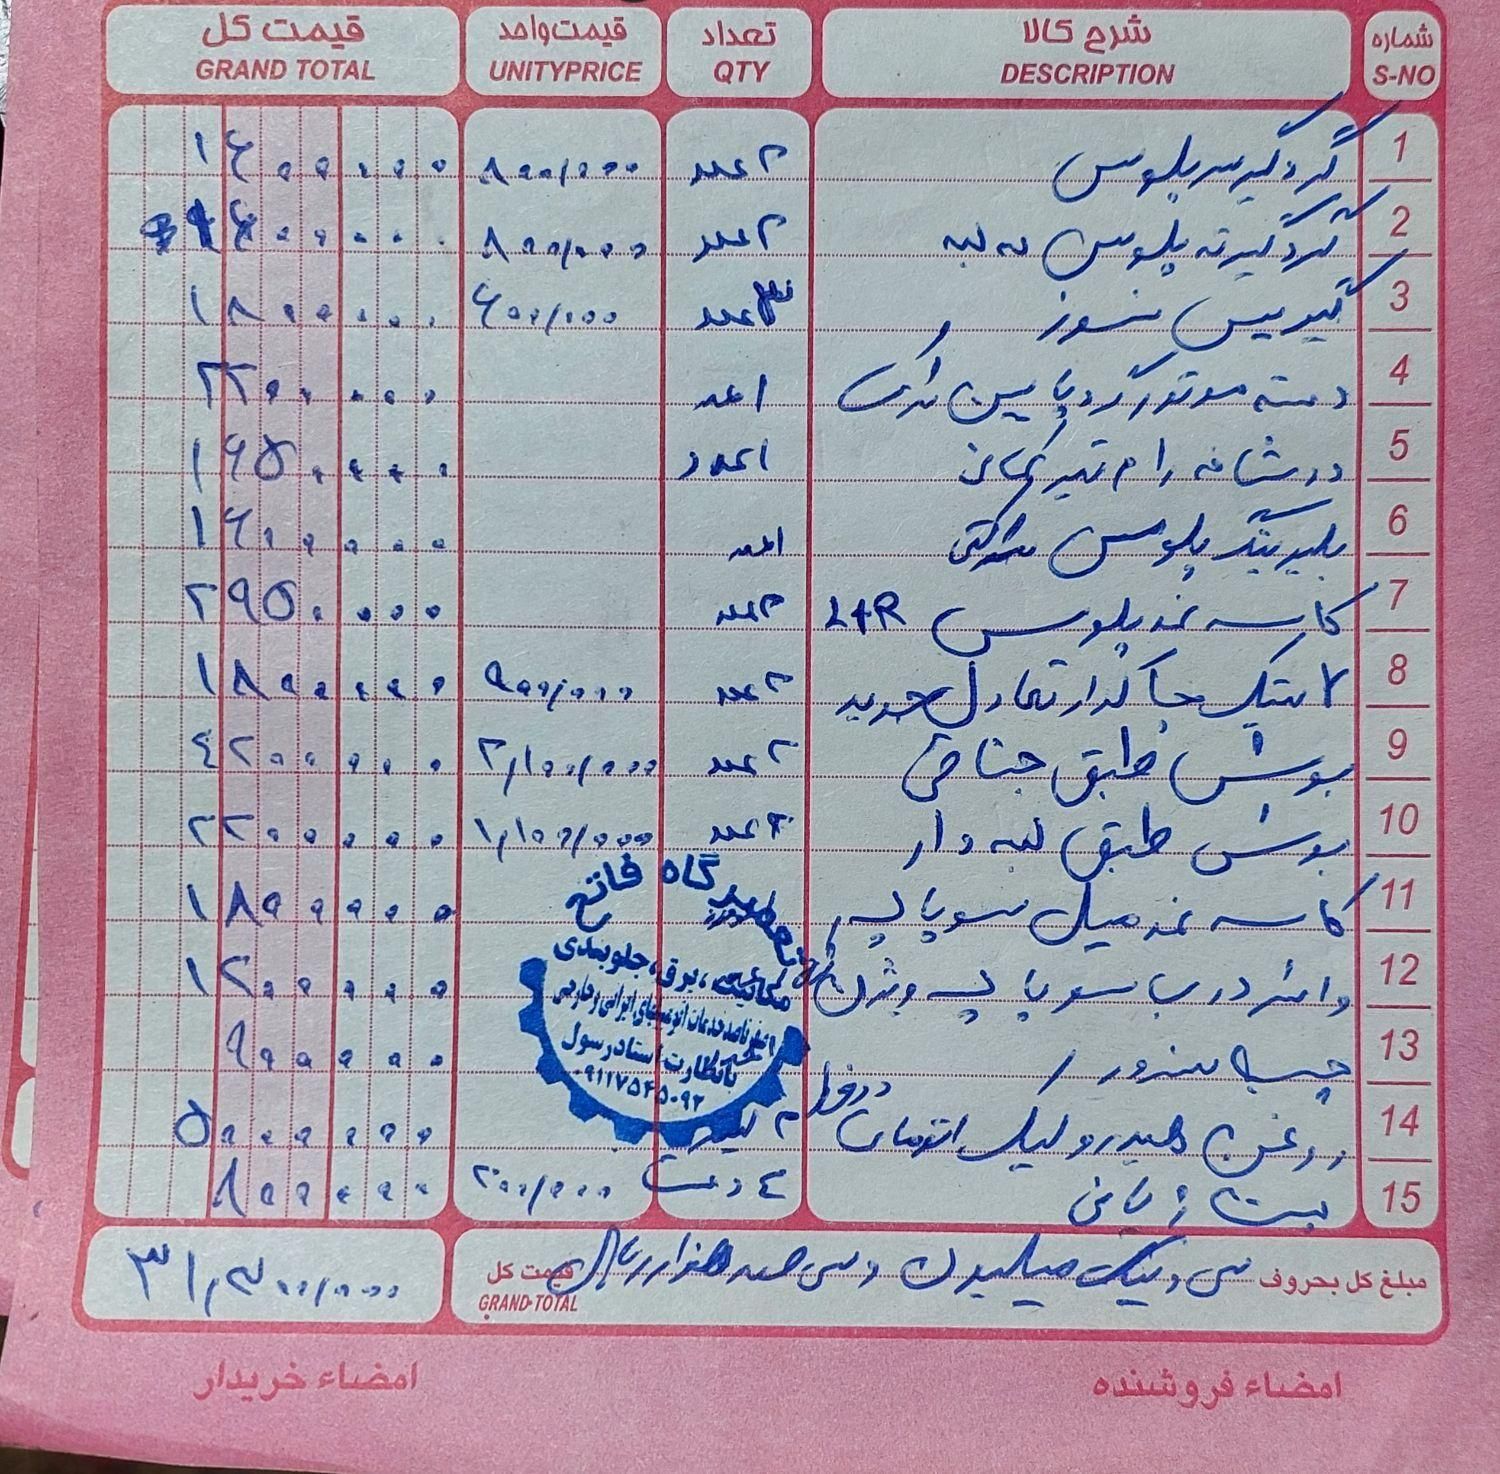 شماره شرح کالا تعداد قیمت واحد قیمت کل
S-NO DESCRIPTION QTY UNITYPRICE GRAND TOTAL
1 گردگیر سر پلوس ۲ عدد ۸۰۰/۰۰۰ ۱۶۰۰۰۰۰
2 گردگیر ته پلوس سه لبه ۲ عدد ۸۰۰/۰۰۰ ۱۶۰۰۰۰۰
3 گیریس نسوز ۳ عدد ۶۰۰/۰۰۰ ۱۸۰۰۰۰۰
4 دسته موتور گرد پایین ۱ عدد ۲۲۰۰۰۰۰
5 دوشاخه رام تیر کمانی ۱ عدد ۱۶۵۰۰۰۰
6 بلبرینگ پلوس شرکتی ۱ عدد ۱۶۰۰۰۰۰
7 کاسه نمد پلوس L+R ۲ عدد ۲۹۵۰۰۰۰
8 لاستیک چاکدار تعادل جدید ۲ عدد ۹۰۰/۰۰۰ ۱۸۰۰۰۰۰
9 بوش طبق جناقی ۲ عدد ۲,۱۰۰/۰۰۰ ۴۲۰۰۰۰۰
10 بوش طبق لبه دار ۲ عدد ۱,۱۰۰/۰۰۰ ۲۲۰۰۰۰۰
11 کاسه نمد میل سوپاپ ۱۸۰۰۰۰۰
12 واشر درب سوپاپ ویژن ۱۲۰۰۰۰۰
13 چسب سزور ۹۰۰۰۰۰
14 روغن هیدرولیک اتومات ۲ لیتر ۵۰۰۰۰۰۰
15 بست ژاپنی ۴ دست ۲۰۰/۰۰۰ ۸۰۰۰۰۰
تعمیرگاه فاتح
مکانیکی، برق، جلوبندی
با نظارت استاد رسول
۰۹۱۱۷۵۴۵۰۹۲
مبلغ کل بحروف سی و یک میلیون و سی صد هزار ریال قیمت کل ۳۱,۳۰۰/۰۰۰
GRAND-TOTAL
امضاء فروشنده امضاء خریدار